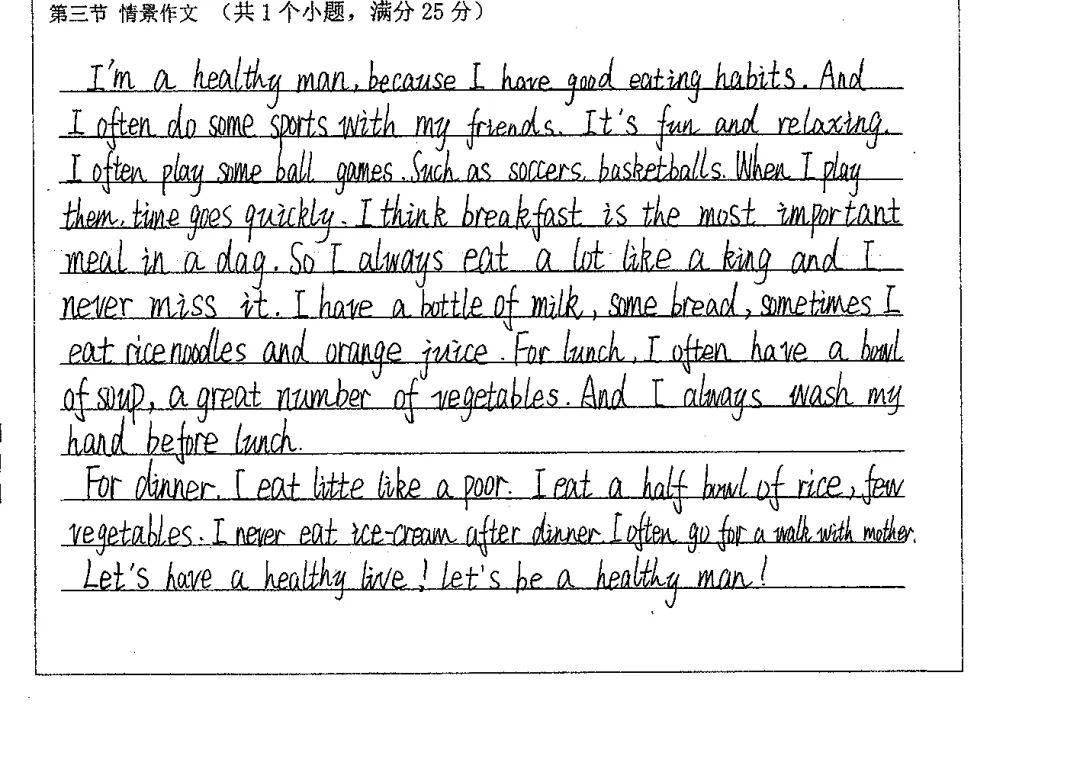 第三节 情景作文 （共1个小题，满分25分）
I'm a healthy man, because I have good eating habits. And
I often do some sports with my friends. It's fun and relaxing.
I often play some ball games. Such as soccers, basketballs. When I play
them, time goes quickly. I think breakfast is the most important
meal in a dag. So I always eat a lot like a king and I
never miss it. I have a bottle of milk, some bread, sometimes I
eat rice noodles and orange juice. For lunch, I often have a bowl
of soup, a great number of vegetables. And I always wash my
hand before lunch.
For dinner. I eat litte like a poor. I eat a half bowl of rice, few
vegetables. I never eat ice-cream after dinner. I often go for a walk with mother.
Let's have a healthy live! Let's be a healthy man!